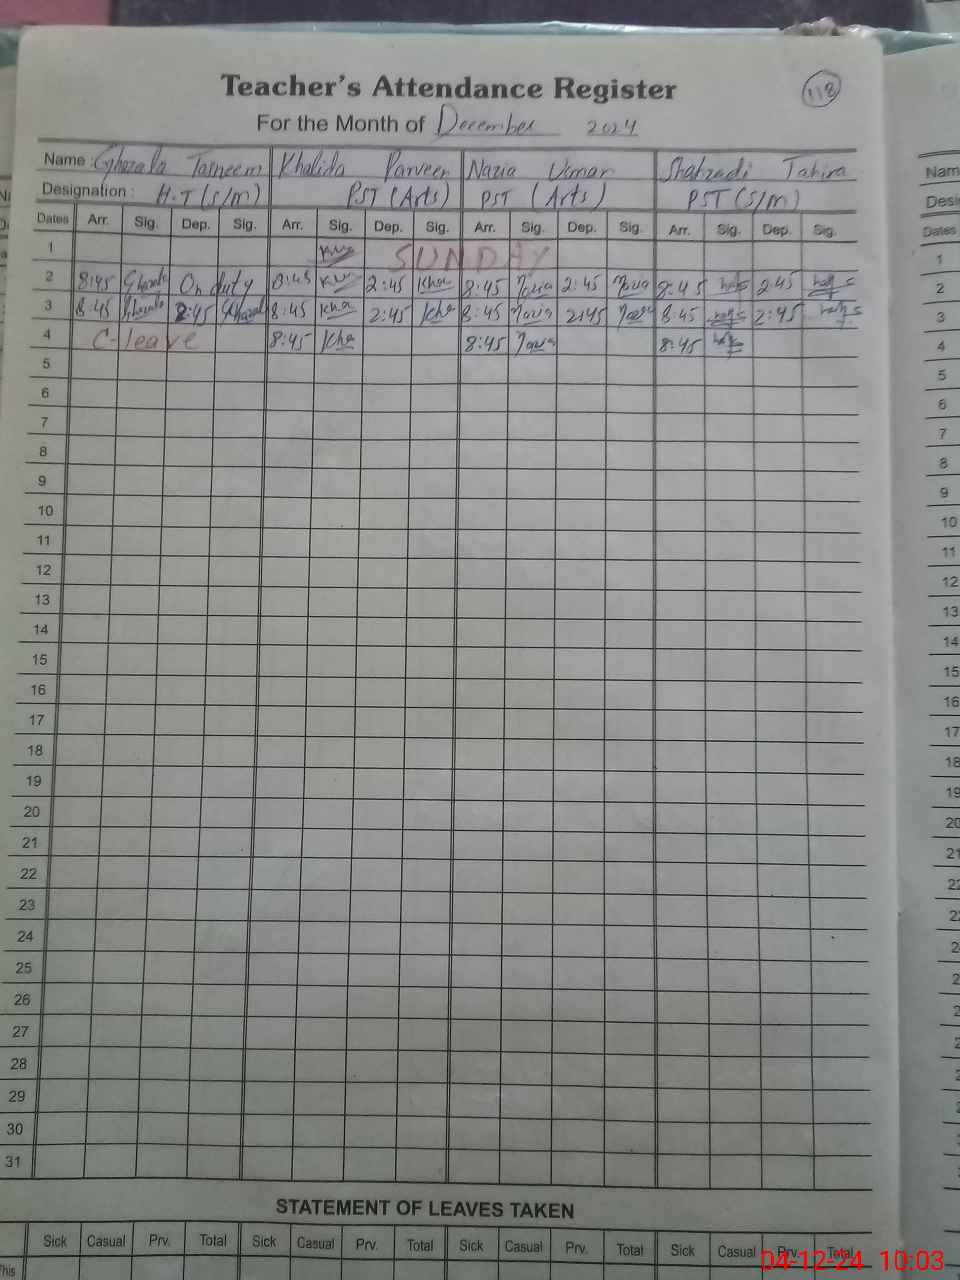 Teacher's Attendance Register
118
For the Month of December 2024
Name : Ghazala Tasneem Khalida Parveen Nazia Usman Shahzadi Tahira
Designation : H.T (S/M) PST (Arts) PST (Arts) PST (S/M)
Dates Arr. Sig. Dep. Sig. Arr. Sig. Dep. Sig. Arr. Sig. Dep. Sig. Arr. Sig. Dep. Sig.
1 SUNDAY
2 8:45 Ghazala On duty 8:45 2:45 Kha 8:45 2:45 8:45 2:45
3 8:45 Ghazala 2:45 Ghazala 8:45 Kha 2:45 Kha 8:45 2:45 8:45 2:45
4 C-leave 8:45 Kha 8:45 8:45
5
6
7
8
9
10
11
12
13
14
15
16
17
18
19
20
21
22
23
24
25
26
27
28
29
30
31
STATEMENT OF LEAVES TAKEN
Sick Casual Prv. Total Sick Casual Prv. Total Sick Casual Prv. Total Sick Casual Prv. Total
This
04-12-24 10:03
Nam
Desi
Dates
1
2
3
4
5
6
7
8
9
10
11
12
13
14
15
16
17
18
19
20
21